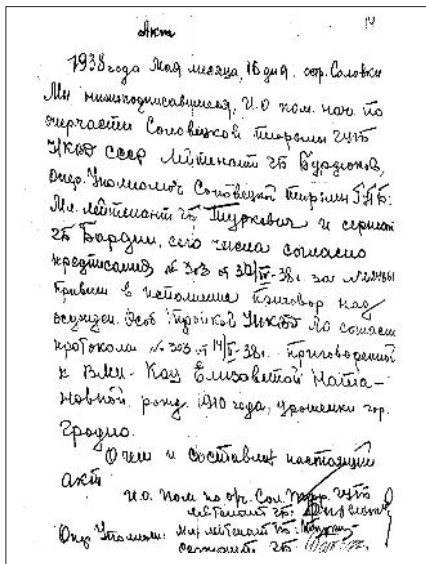 14
Акт
1938 года Мая месяца, 16 дня, гор. Соловки
Мы нижеподписавшиеся, И.О пом. нач. по
оперчасти Соловецкой тюрьмы ГУГБ
НКВД СССР Лейтенант ГБ
Опер. Уполномоч Соловецкой тюрьмы ГУГБ:
Мл. лейтенант ГБ Туркевич и сержант
ГБ сего числа согласно
предписания № 303 от -38г. за №
привели в исполнение приговор над
осужден. Особ тройкой УНКВД ЛО согласно
протокола № 303 от 14/ -38г. приговоренной
к ВМН - Кац Елизаветой Ната-
новной, рожд. 1910 года, уроженки гор.
Гродно.
О чем и составлен настоящий
акт
И.О. Пом по оч. Сол. Тюр. ГУГБ
лейтенант ГБ:
Опер Уполном: мл лейтенант ГБ:
сержант ГБ